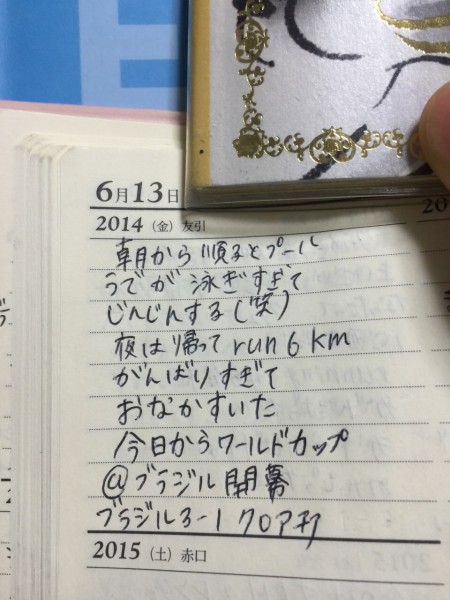 6月13日
2014(金)友引
朝から順子とプール
うでが泳ぎすぎて
じんじんする(笑)
夜は帰ってrun 6 km
がんばりすぎて
おなかすいた
今日からワールドカップ
@ブラジル開幕
ブラジル3-1クロアチア
2015(土)赤口